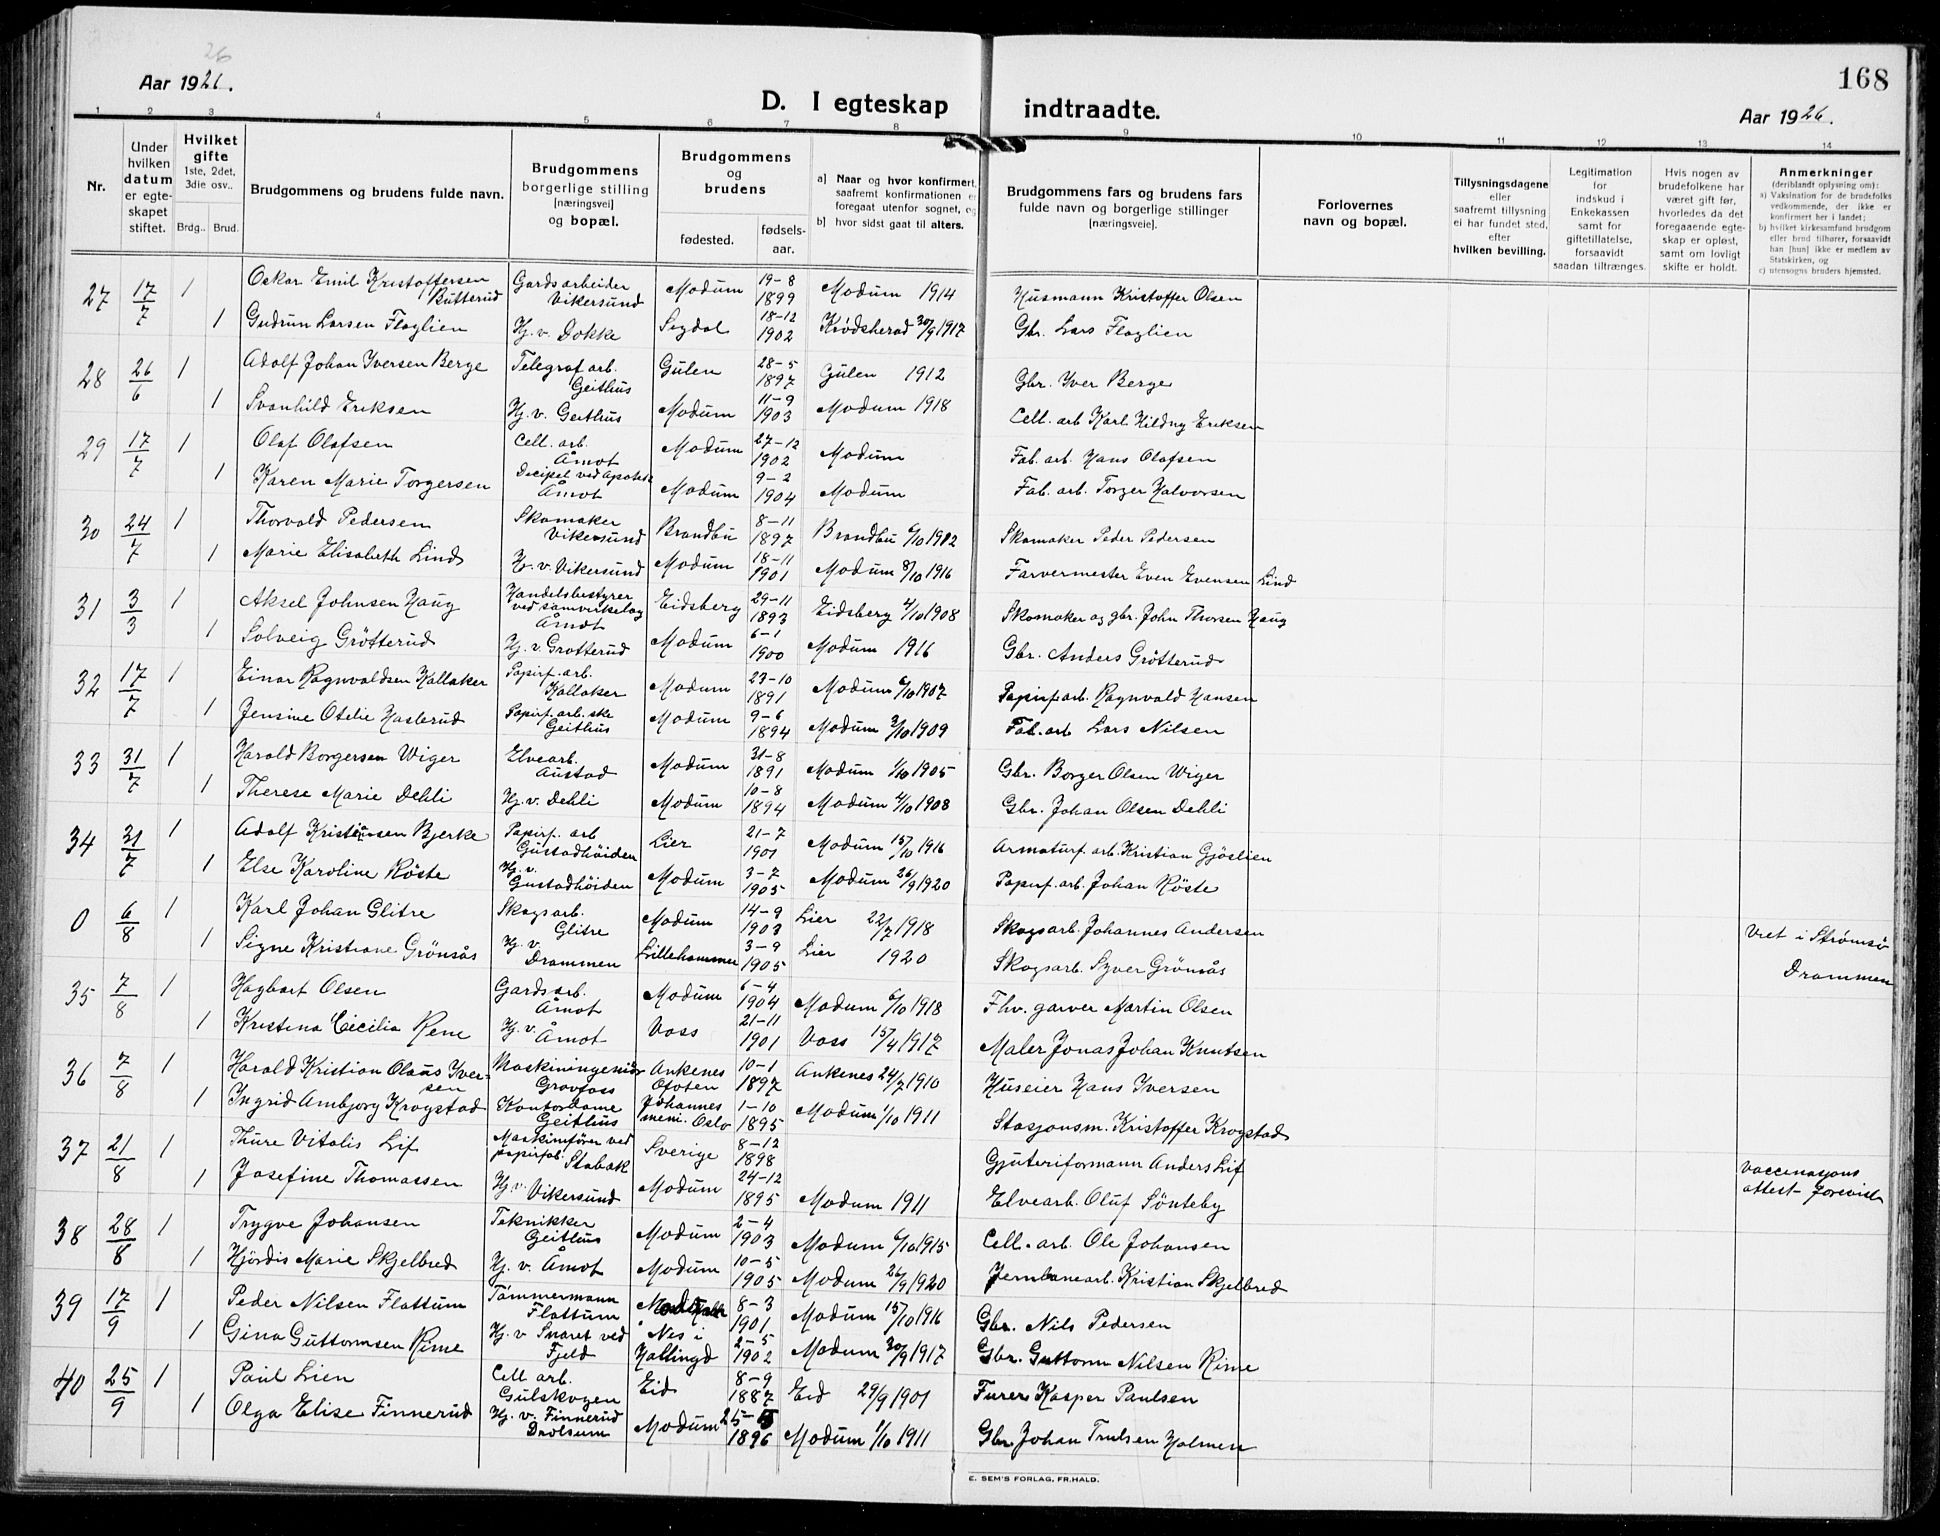 26
Aar 1926.
D. I egteskap indtraadte.
168
Aar 1926.
1 2 3 4 5 6 7 8 9 10 11 12 13 14
Nr.
Under hvilken datum er egteskapet stiftet.
Hvilket gifte 1ste, 2det, 3die osv..
Brdg.. Brud.
Brudgommens og brudens fulde navn.
Brudgommens borgerlige stilling [næringsvei] og bopæl.
Brudgommens og brudens
fødested. fødselsaar.
a] Naar og hvor konfirmert, saafremt konfirmationen er foregaat utenfor sognet, og
b] hvor sidst gaat til alters.
Brudgommens fars og brudens fars fulde navn og borgerlige stillinger [næringsveie].
Forlovernes navn og bopæl.
Tillysningsdagene eller saafremt tillysning ei har fundet sted, efter hvilken bevilling.
Legitimation for indskud i Enkekassen samt for giftetillatelse, forsaavidt saadan tiltrænges.
Hvis nogen av brudefolkene har været gift før, hvorledes da det foregaaende egteskap er opløst, samt om lovligt skifte er holdt.
Anmerkninger (deriblandt oplysning om):
a) Vaksination for de brudefolks vedkommende, der ikke er konfirmert her i landet;
b) hvilket kirkesamfund brudgom eller brud tilhører, forsaavidt han [hun] ikke er medlem av Statskirken, og
c) utensogns bruders hjemsted.
27 17/7 1 Oskar Emil Kristoffersen Butterud Gardsarbeider Vikersund Modum 19-8 1899 Modum 1914 Husmann Kristoffer Olsen
1 Gudrun Larsen Flaglien Hj. v. Dokke Sigdal 18-12 1902 Krødsherad 30/9 1917 Gbr. Lars Flaglien
28 26/6 1 Adolf Johan Iversen Berge Telegraf arb. Geithus Gulen 28-5 1897 Gulen 1912 Gbr. Iver Berge
1 Svanhild Eriksen Hj. v. Geithus Modum 11-9 1903 Modum 1918 Cell. arb Karl Hildny Eriksen
29 17/7 1 Olaf Olafsen Cell. arb. Åmot Modum 27-12 1902 Modum Fab. arb. Hans Olafsen
1 Karen Marie Torgersen Decipel ved Apotek Åmot Modum 9-2 1904 Modum Fab. arb. Torger Halvorsen
30 24/7 1 Thorvald Pedersen Skomaker Vikersund Brandbu 8-11 1897 Brandbu 6/10 1912 Skomaker Peder Pedersen
1 Marie Elisabeth Lind Hj. v. Vikersund Modum 18-11 1901 Modum 8/10 1916 Farvermester Even Evensen Lind
31 3/3 1 Aksel Johnsen Haug Handelsbestyrer ved samvirkelag Åmot Eidsberg 29-11 1893 Eidsberg 4/10 1908 Skomaker og gbr. John Thorsen Haug
1 Solveig Grøtterud Hj. v. Grøtterud Modum 6-1 1900 Modum 1916 Gbr. Anders Grøtterud
32 17/7 1 Einar Ragnvaldsen Kallaker Papirf. arb. Kallaker Modum 23-10 1891 Modum 6/10 1907 Papirf. arb. Ragnvald Hansen
1 Jensine Otelie Haslerud Papirf. arb. ske Geithus Modum 9-6 1894 Modum 3/10 1909 Fab. arb Lars Nilsen
33 31/7 1 Harald Borgersen Wiger Elvearb. Austad Modum 31-8 1891 Modum 1/10 1905 Gbr. Borger Olsen Wiger
1 Therese Marie Dehli Hj. v. Dehli Modum 10-8 1894 Modum 4/10 1908 Gbr. Johan Olsen Dehli
34 31/7 1 Adolf Kristiansen Bjerke Papirf. arb Gustadhöiden Lier 21-7 1901 Modum 15/10 1916 Armaturf. arb. Kristian Gjöslien
1 Else Karoline Röste Hj. v. Gustadhöiden Modum 3-7 1905 Modum 26/9 1920 Papirf. arb. Johan Röste
0 6/8 1 Karl Johan Glitre Skogsarb. Glitre Modum 14-9 1903 Lier 22/7 1918 Skogsarb. Johannes Andersen Viet i Strömsö
1 Signe Kristiane Grönsås Hj. v. Drammen Lillehammer 3-9 1905 Lier 1920 Skogsarb. Syver Grönsås Drammen
35 7/8 1 Hagbart Olsen Gardsarb. Åmot Modum 6-4 1904 Modum 6/10 1918 Fhv. garver Martin Olsen
1 Kristina Cecilia Rene Hj. v. Åmot Voss 21-11 1901 Voss 15/4 1917 Maler Jonas Johan Knutsen
36 7/8 1 Harald Kristian Olaus Iversen Maskiningeniør Gravfoss Ankenes Ofoten 10-1 1897 Ankenes 24/7 1910 Huseier Hans Iversen
1 Ingrid Ambjorg Krogstad Kontordame Geithus Johannes meni. Oslo 1-10 1895 Modum 1/10 1911 Stasjonsm. Kristoffer Krogstad
37 21/8 1 Thure Vitalis Lif Maskinfører ved papirfab. Stabæk Sverige 8-12 1898 Gjuteriformann Anders Lif vaccinasjons
1 Josefine Thomassen Hj. v. Vikersund Modum 24-12 1895 Modum 1911 Elvearb. Oluf Sönteby attest forevist
38 28/8 1 Trygve Johansen Teknikker Geithus Modum 2-4 1903 Modum 6/10 1915 Cell. arb. Ole Johansen
1 Hjördis Marie Skjelbred Hj. v. Åmot Modum 10-5 1905 Modum 26/9 1920 Jernbanearb. Kristian Skjelbred
39 17/9 1 Peder Nilsen Flattum Tömmermann Flattum 8-3 1901 Modum 15/10 1916 Gbr. Nils Pedersen
1 Gina Guttormsen Rime Hj. v Snaret ved Fjeld Nes i Hallingd 2-5 1902 Modum 30/9 1917 Gbr. Guttorm Nilsen Rime
40 25/9 1 Paul Lien Cell arb. Gulskogen Eid 8-9 1887 Eid 29/9 1901 Furer Kasper Paulsen
1 Olga Elise Finnerud Hj. v. Finnerud Drolsum Modum 25-5 1896 Modum 1/10 1911 Gbr Johan Trulsen Holmen
E. SEM'S FORLAG, FR.HALD.